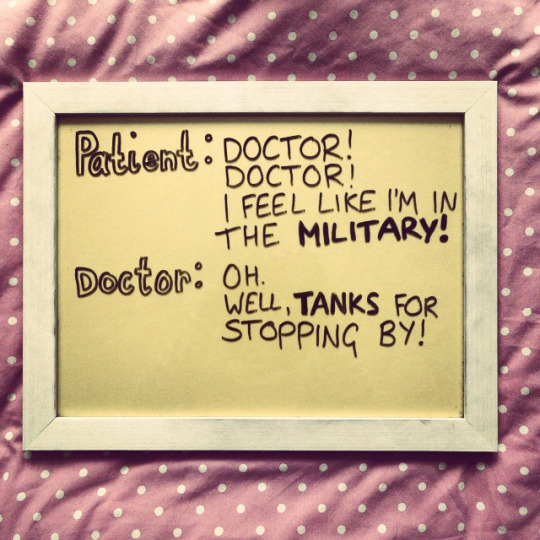 Patient: DOCTOR!
DOCTOR!
I FEEL LIKE I'M IN
THE MILITARY!
Doctor: OH.
WELL, TANKS FOR
STOPPING BY!